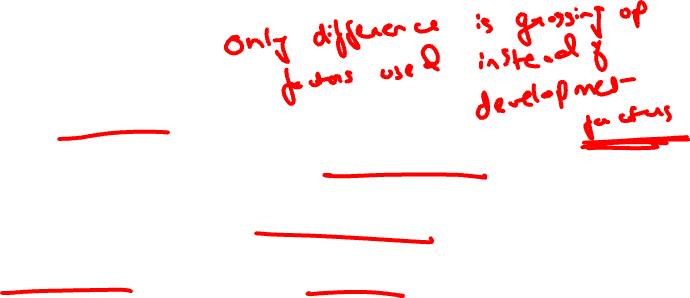 only difference is grossing up
factors used instead of
development
factors